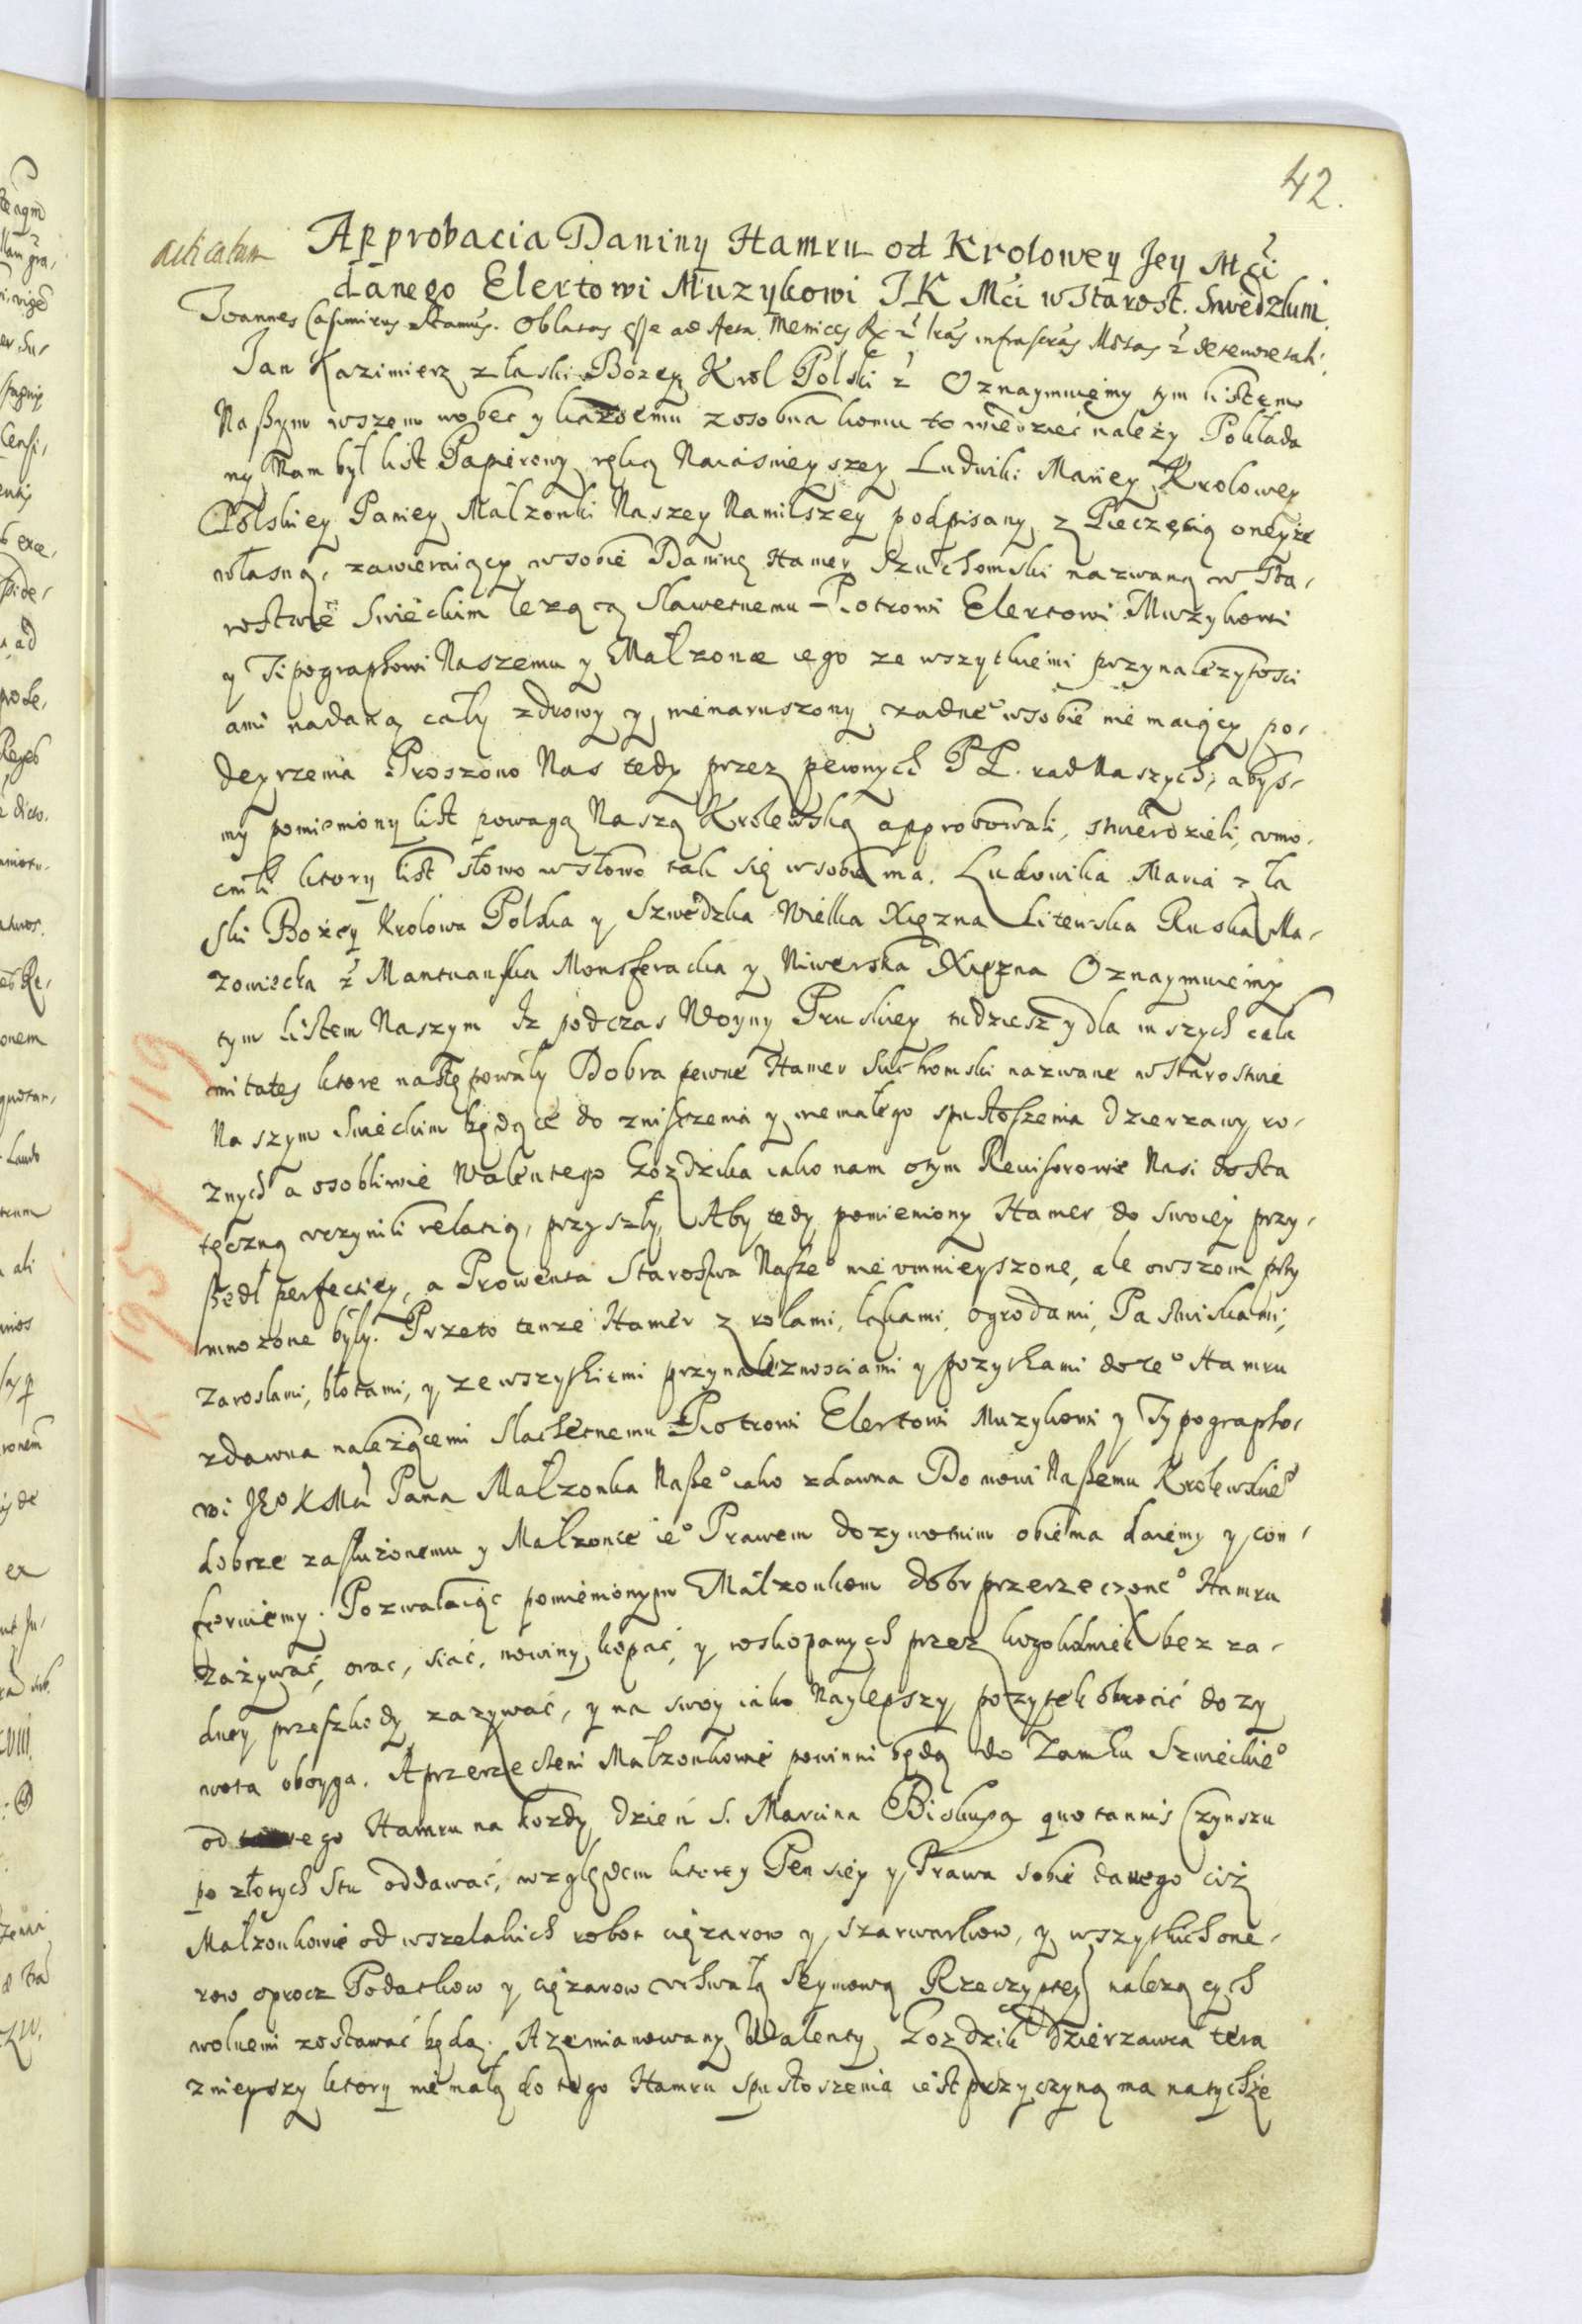 42.
acticatum
Approbacia Daniny Hamru od Krolowey Jey Mći
danego Elertowi Muzykowi J K Mći w Starost. Swiedzkim
Joannes Casimirus &tamus. Oblatas esse ad Acta Metrices R: & lras infrascras Mtas & de tenore tali:
Jan Kazimierz z łaski Bożey Krol Polski & Oznaymuiemy tym listem
Naszym wszem wobec y każdemu zosobna komu to wiedzieć należy Pokłada
ny Nam był list Papierowy ręką Naiaśnieyszey Ludwiki Mariey Krolowey
Polskiey Paniey Małzonki Naszey Namilszey podpisany z Pieczęcią oneyze
własną, zawieraiący w sobie Daninę Hamer Szuchomski nazwaną w Sta-
rostwie Swieckim lezącą Sławetnemu Piotrowi Elertowi Muzykowi
y Tipographowi Naszemu y Małzonce iego ze wszytkiemi przynalezytosci
ami nadaną cały zdrowy y nienaruszony zadne° w sobie nie maiący po-
deyrzenia Proszono Nas tedy przez pewnych PP. rad Naszych, abys-
my pomieniony list powagą Naszą Krolewską approbowali, stwierdzili, vmo-
cnili ktory list słowo w słowo tak się w sobie ma. Ludowika Maria z ła
ski Bożey Krolowa Polska y Szwedzka Wielka Xiężna Litewska Ruska Ma-
zowiecka & Mantuańska Monsferacka y Niwerska Xiężna Oznaymuiemy
tym listem Naszym Iz podczas Woyny Pruskiey tudziesz y dla inszych cala
mitates ktore następowały Dobra pewne Hamer Suchomski nazwane w Starostwie
Naszym Swieckim będące do zniszczenia y niemałego spustoszenia Dzierzawy ro-
znych a osobliwie Walentego Gozdzika iako nam o tym Rewisorowie Nasi dosta
teczną vczynili relatią, przyszły, Aby tedy pomieniony Hamer do swoiey przy-
szedł perfectiey, a Prowenta Starostwa Nasze° nie vmnieyszone, ale owszem przy
mnozone były. Przeto tenze Hamer z rolami, łąkami, ogrodami, Pastwiskami,
Zaroslami, błotami, y ze wszytkiemi przynaleznosciami y pozytkami do te° Hamru
zdawna należącemi Slachetnemu Piotrowi Elertowi Muzykowi y Typographo-
wi JE° K Mći Pana Małzonka Nasze° iako zdawna Domowi Naszemu Krolewskie°
dobrze zasłużonemu y Małzonce ie° Prawem dozywotnim obiema daiemy y con-
feruiemy. Pozwalaiąc pomienionym Małzonkom dobr przerzeczone° Hamru
Zażywać, orac, siać, nowiny kopać, y wskopanych przez kogokolwiek bez za-
dney przeszkody zazywać, y na swoy iako Naylepszy pozytek obrocić do zy
wota oboyga. A przerzeczeni Małzonkowie powinni będą do Zamku Swieckie°
od tego Hamru na kozdy dzień S. Marcina Biskupa quotannis Czynszu
po złotych stu oddawać, względem ktorey Pensiey y Prawa sobie danego ciż
Małzonkowie od wszelakich robot ciężarow y szarwarkow, y wszytkich one-
row oprocz Podatkow y ciężarow vchwałą Seymową Rzeczyptey należących
wolnemi zostawać będą. A zemianowany Walenty Gozdzik dzierzawca tera
znieyszy ktory niemałą do tego Hamru spustoszenia iest przyczyną ma natychże
K 195 / 119